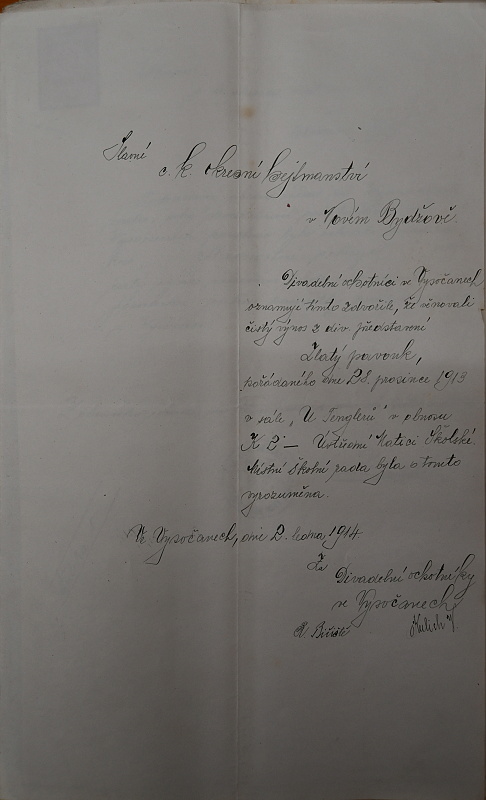 Slavné
c. k. okresní hejtmanství
v Novém Bydžově.
Divadelní ochotníci ve Vysočanech
oznamují tímto zdvořile, že věnovali
čistý výnos z div. představení
Zlatý pavouk,
pořádaného dne 28. prosince 1913
v sále „U Tenglerů" v obnosu
K 2 — Ústřední Matici Školské.
Místní školní rada byla o tomto
vyrozuměna.
Ve Vysočanech, dne 2. ledna 1914.
Za
Divadelní ochotníky
ve Vysočanech